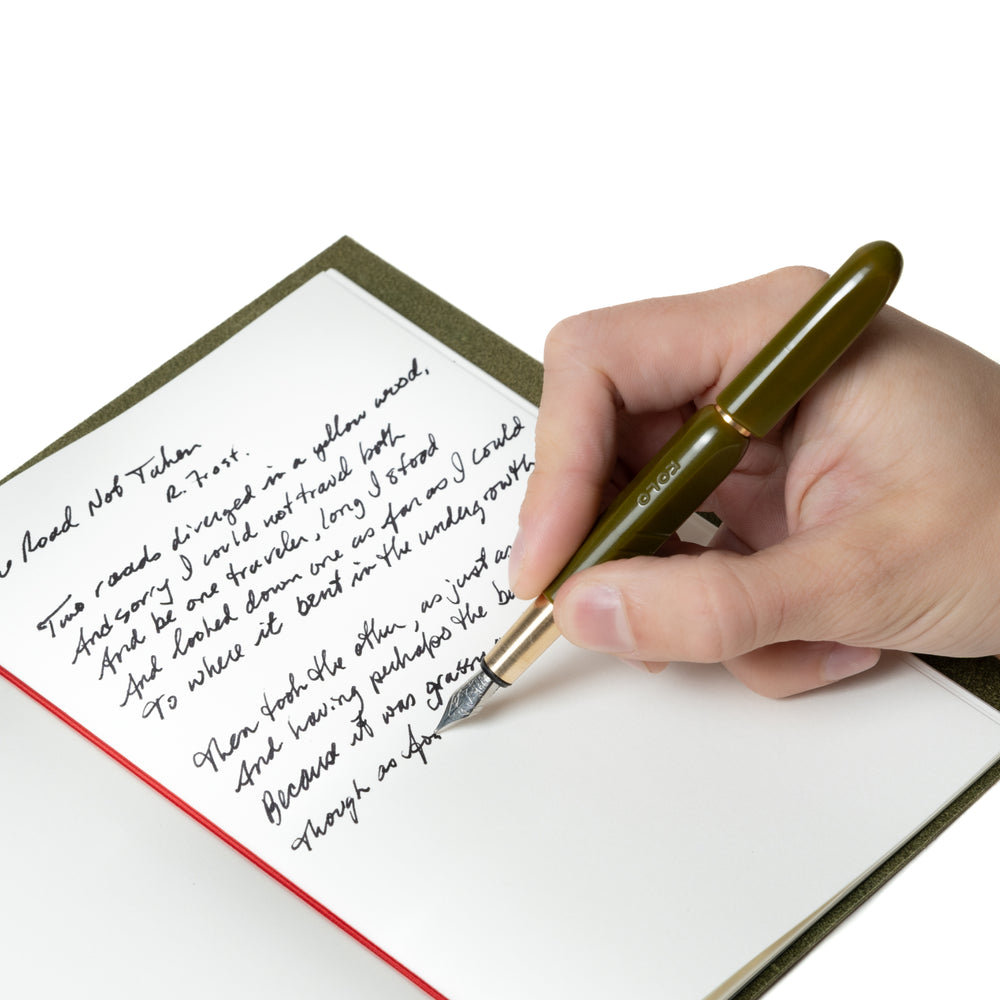 Road Not Taken
R. Frost.
Two roads diverged in a yellow wood,
And sorry I could not travel both
And be one traveler, long I stood
And looked down one as far as I could
To where it bent in the undergrowth
Then took the other, as just as
And having perhaps the be
Because it was grassy
Though as for
POLO